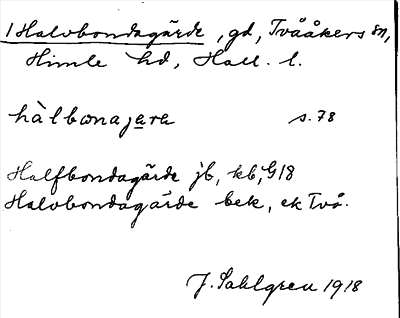 1 Halvbondagärde, gd, Tvååkers sn,
Himle hd, Hall. l.
hàlbonajara s. 78
Halfbondagärde jb, kb, G18
Halvbondagärde bek, ek Två.
J. Sahlgren 1918